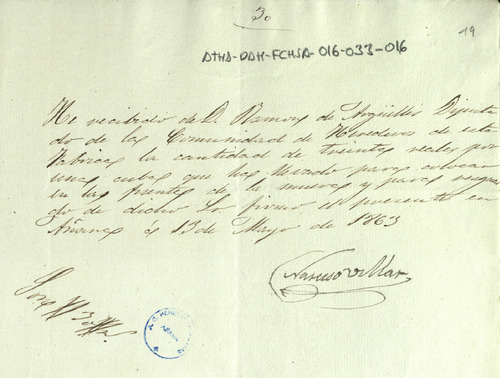 30
19
ATHA-DAH-FCHSA-016-033-016
He recibido de D. Ramon de Argüelles Diputa
do de la Comunidad de Herederos de esta
Fabrica la cantidad de treinta reales por
una cuba que has llevado para colocar
en las fuentes de la muera y para resguar
do de dicho Sr firmo el presente en
Añana a 13 de Mayo de 1863
Narciso Villar